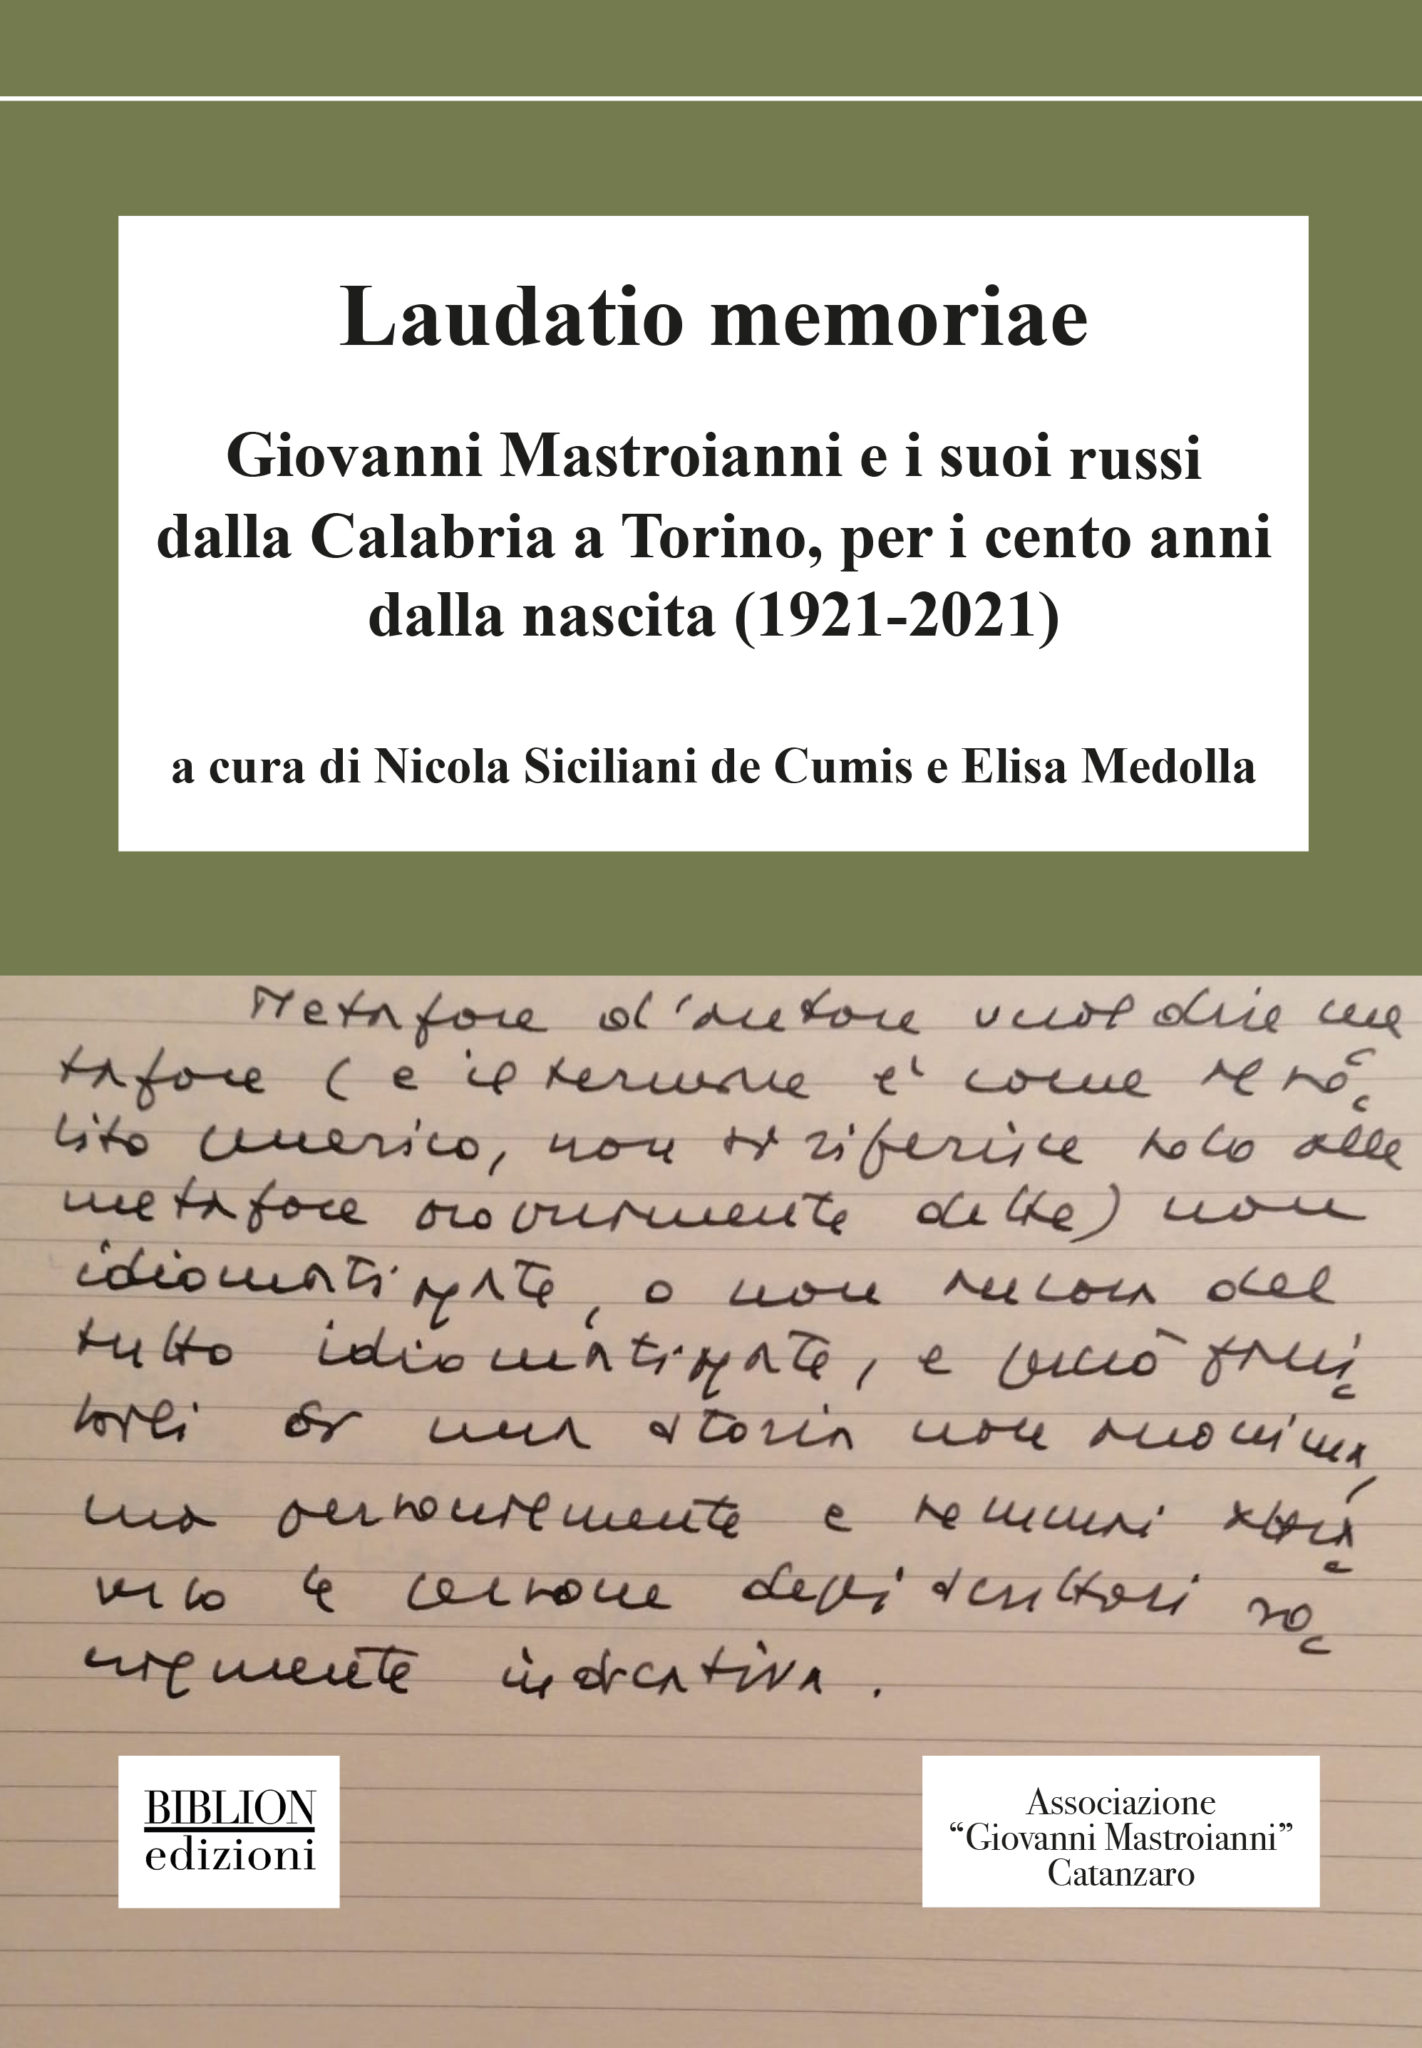 Laudatio memoriae
Giovanni Mastroianni e i suoi russi
dalla Calabria a Torino, per i cento anni
dalla nascita (1921-2021)
a cura di Nicola Siciliani de Cumis e Elisa Medolla
Metafore d'autore vuol dire me
tafore (e il termine è come al so=
lito generico, non si riferisce solo alle
metafore propriamente dette) non
idiomatizzate, o non ancora del
tutto idiomatizzate, e perciò
di una storia non anonima,
ma personalmente e semmai attra=
verso le persone degli scrittori so=
cialmente indicativa.
BIBLION
edizioni
Associazione
“Giovanni Mastroianni”
Catanzaro